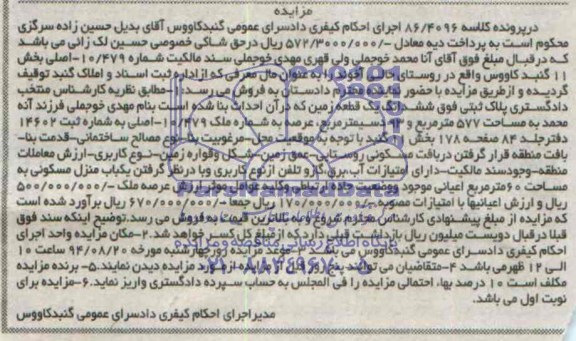 مزایده
درپرونده کلاسه ۸۶/۴۰۹۶ اجرای احکام کیفری دادسرای عمومی گنبدکاووس آقای بدیل حسین زاده سرگزی
محکوم است به پرداخت دیه معادل -/۵۷۲/۳۰۰۰/۰۰۰ ریال درحق شاکی خصوصی حسین لک زائی می باشد
که درقبال مبلغ فوق آقای آنا محمد خوجملی ولی قهری مهدی خوجملی سند مالکیت شماره ۱۰/۴۷۹-اصلی بخش
۱۱ گنبد کاووس واقع در روستای حاجی آخوند را به عنوان مال معرفی که از اداره ثبت اسناد و املاک گنبد توقیف
گردیده و ازطریق مزایده با حضور نماینده محترم دادستان به فروش می رسد: ۱-مطابق نظریه کارشناس منتخب
دادگستری پلاک ثبتی فوق ششدانگ یک قطعه زمین که در آن احداث بنا شده است بنام مهدی خوجملی فرزند آنه
محمد به مساحت ۵۷۷ مترمربع و سیمترمربع، عرصه به شماره ملک ۱۰/۴۷۹-اصلی به شماره ثبت ۱۴۶۰۲
دفترجلد ۸۴ صفحه ۱۷۸ بخش ۱۱ گنبد با توجه به موقعیت محل-مرغوبیت بنا-نوع مصالح ساختمانی-قدمت بنا-
بافت منطقه قرار گرفتن دریافت مسکونی روستایی-عمق زمین-شکل وقواره زمین-نوع کاربری-ارزش معاملات
منطقه-وجودسند مالکیت-دارای امتیازات آب،برق،گاز و تلفن ازنوع کاربری وبا درنظر گرفتن یکباب منزل مسکونی به
مساحت ۶۰مترمربع اعیانی موجود ووضعیت جاده ارتباطی وکلیه عوامل موثر ارزش عرصه ملک -/۵۰۰/۰۰۰/۰۰۰
ریال و ارزش اعیانیها با امتیازات منصوبه -/۱۷۰/۰۰۰/۰۰۰ ریال جمعا -/۶۷۰/۰۰۰/۰۰۰ ریال برآورد شده است
که مزایده از مبلغ پیشنهادی کارشناس محترم شروع و به بالاترین قیمت به فروش می رسد.توضیح اینکه سند فوق
قبلا درقبال دویست میلیون ریال بازداشت قبلی دارد که از مبلغ کل کسر خواهد شد.۲-مکان مزایده واحد اجرای
احکام کیفری دادسرای عمومی گنبدکاووس می باشد.۳-موعد مزایده روزچهارشنبه مورخه ۹۴/۰۸/۲۰ ساعت ۱۰
الی ۱۲ ظهر می باشد ۴-متقاضیان می توانند پنج روز قبل از مزایده از مورد مزایده دیدن نمایند.۵- برنده مزایده
مکلف است ۱۰ درصد بها، احتمالی مزایده را فی المجلس به حساب سپرده دادگستری واریز نماید.۶-مزایده برای
نوبت اول می باشد.
مدیراجرای احکام کیفری دادسرای عمومی گنبدکاووس
پایگاه اطلاع رسانی مناقصه و مزایده